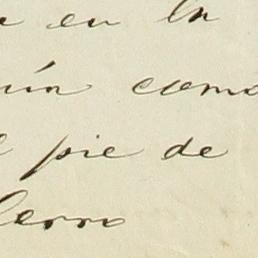 en la
ún como
pie de
Cerro